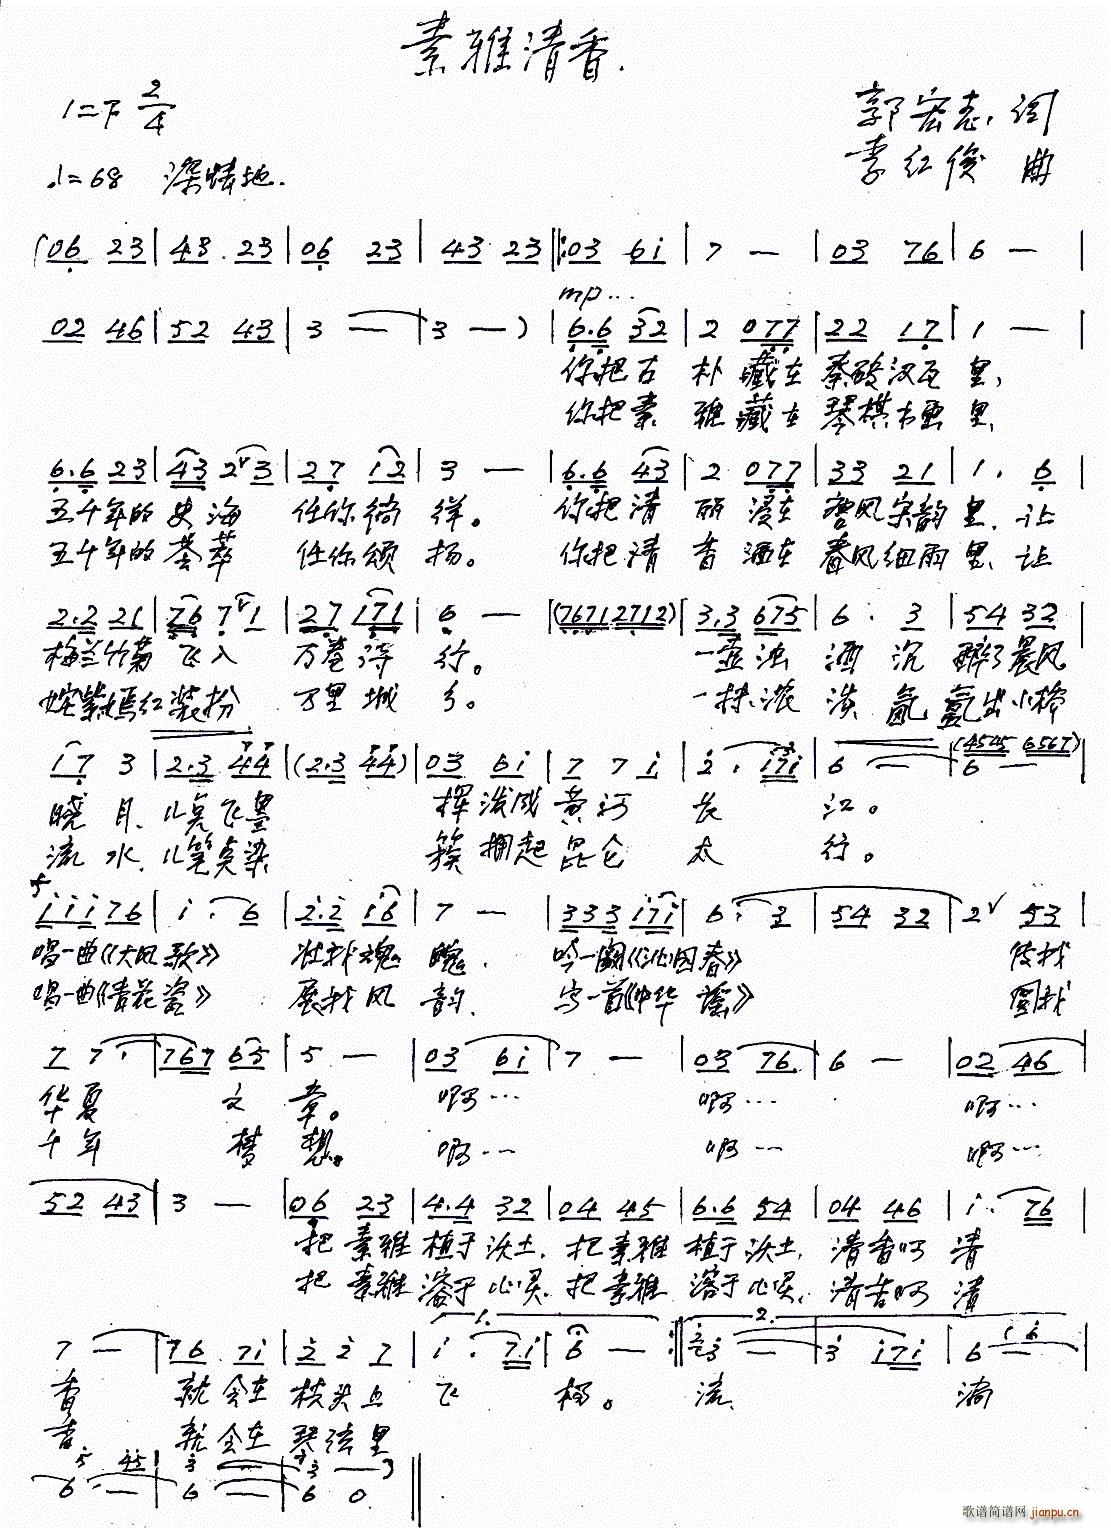 素雅清香.
1=F 2/4
郭宏志 词
♩=68 深情地.
李红俊 曲
(06 23 | 43 23 | 06 23 | 43 23 ‖: 03 6i | 7 — | 03 76 | 6 — |
mp...
02 46 | 52 43 | 3 — | 3 — ) | 6.6 32 | 2 077 | 22 17 | 1 — |
你把古 朴 藏在 秦砖汉瓦 里,
你把素 雅 藏在 琴棋书画 里,
6.6 23 | 43 2 3 | 27 12 | 3 — | 6.6 43 | 2 077 | 33 21 | 1. 6 |
五千年的 史海 任你徜 徉。 你把清 丽 浸在 唐风宋韵 里, 让
五千年的 荟萃 任你颂 扬。 你把清 香 洒在 春风细雨 里, 让
2.2 21 | 76 7 1 | 27 171 | 6 — | (76712712) | 3.3 675 | 6. 3 | 54 32 |
梅兰竹菊 飞入 万卷诗 行。 一壶浊 酒 沉 醉了晨风
姹紫嫣红 装扮 万里城 乡。 一抹浓 淡 氤 氲出小桥
i7 3 | 2.3 44 | (2.3 44) | 03 6i | 7 7 i | 2. i7i | 6 — | 6 — |
(4545 6567)
晓 月, 几亮飞墨 挥泼成 黄河 长 江。
流 水, 几笔点染 簇拥起 昆仑 太 行。
i i i 76 | i. 6 | 2.2 i6 | 7 — | 333 i7i | 6. 3 | 54 32 | 2 53 |
唱一曲《大风歌》 壮我魂 魄, 吟一阕《沁园春》 传我
唱一曲《青花瓷》 展我风 韵, 写一首《中华 谣》 圆我
7 7. | 767 65 | 5 — | 03 6i | 7 — | 03 76 | 6 — | 02 46 |
华夏 文 章。 啊… 啊… 啊…
千年 梦 想。 啊… 啊… 啊…
52 43 | 3 — | 06 23 | 4.4 32 | 04 45 | 6.6 54 | 04 46 | i. 76 |
把 素雅 植于 沃土, 把 素雅 植于 沃土, 清香啊 清
把 素雅 溶于 心灵, 把 素雅 溶于 心灵, 清香啊 清
1. 2.
7 — | 76 7i | 2 2 7 | i. 7i | 6 — :‖ 3 — | 3 i7i | 6 — |
香 就会在 枝头上 飞 扬。 流 淌
香 就会在 琴弦里
5 45 | 3 — | 3 —
6. — | 6 — | 6 0 ‖
歌谱简谱网 jianpu.cn